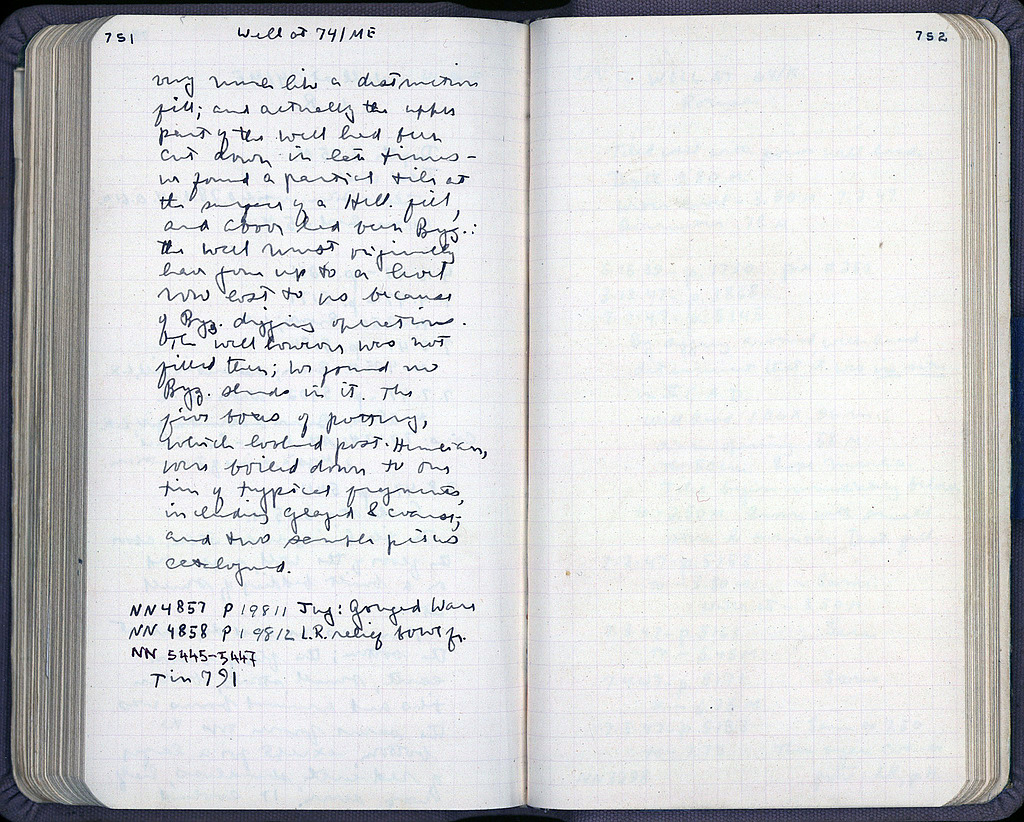 751
Well at 74/ME
752
very much like a destruction
fill; and actually the upper
part of the well had been
cut down in late times –
we found a partial tile at
the surface of a Hell. fill,
and above had been Byz.:
the well must originally
have gone up to a level
now lost to us because
of Byz. digging operations.
The well however was not
filled then; we found no
Byz. sherds in it. The
five boxes of pottery,
which looked post-Herulian,
were boiled down to one
tin of typical fragments,
including glazed &
and two sample pieces
catalogued.
NN 4857 P 19811 Jug: Gouged Ware
NN 4858 P 19812 L.R. relief bowl fr.
NN 5445-5447
Tin 791